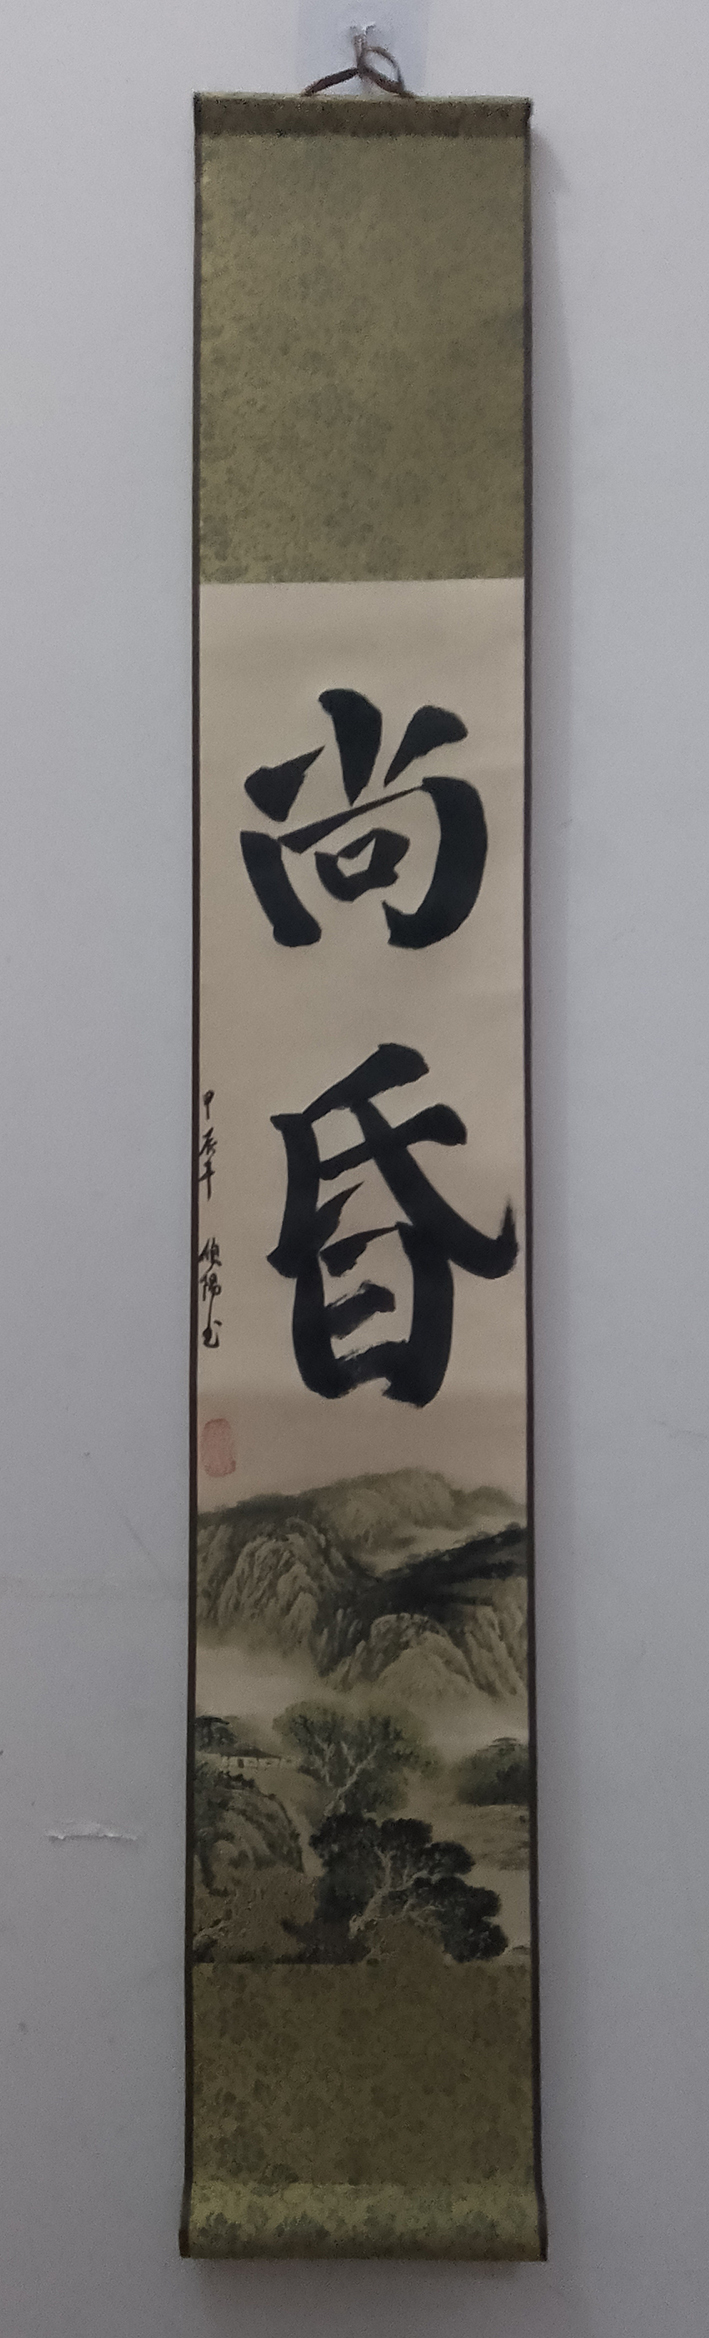 尚昏
甲辰年 俊陽书